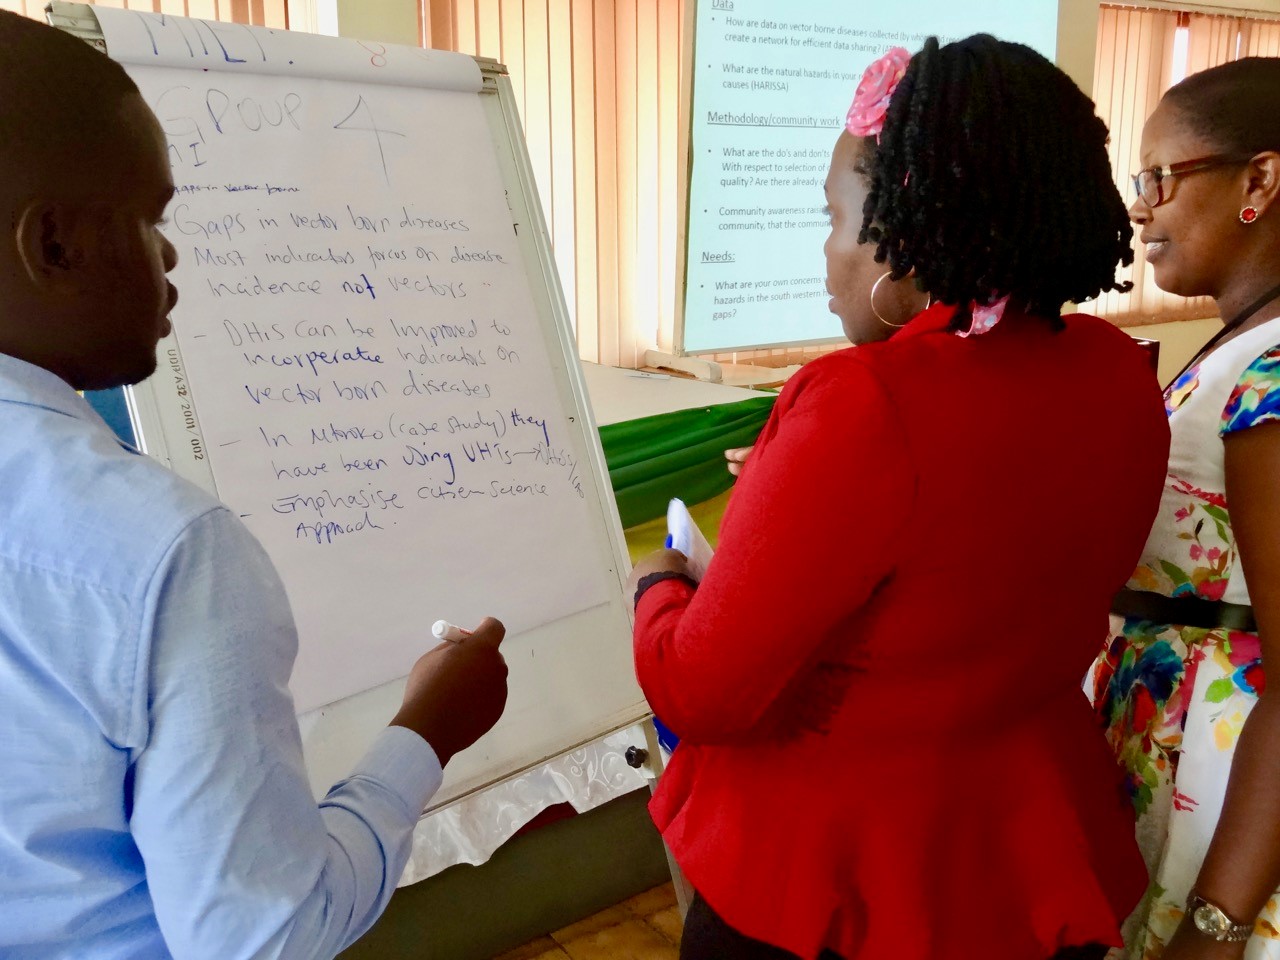 GROUP 4
Gaps in vector born diseases
Most indicators focus on disease
incidence not vectors
- DHIS can be Improved to
incorperate indicators on
vector born diseases
- In Mtoroko (case study) they
have been using VHTs → DHOs/
- Emphasise citizen science
Approach.
UDIA/A32/2001/002
Data
• How are data on vector borne diseases collected (by
create a network for efficient data sharing?
• What are the natural hazards in your
causes (HARISSA)
Methodology/community work
• What are the do's and don'ts
With respect to selection of
quality? Are there already
• Community awareness
community, that the
Needs:
• What are your own concerns
hazards in the south western
gaps?